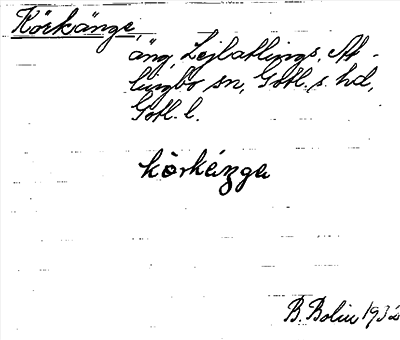 Körkänge,
äng, Lejlatlings, At-
lingbo sn, Gotl. s. hd,
Gotl. l.
körkánga
B. Bolin 1932